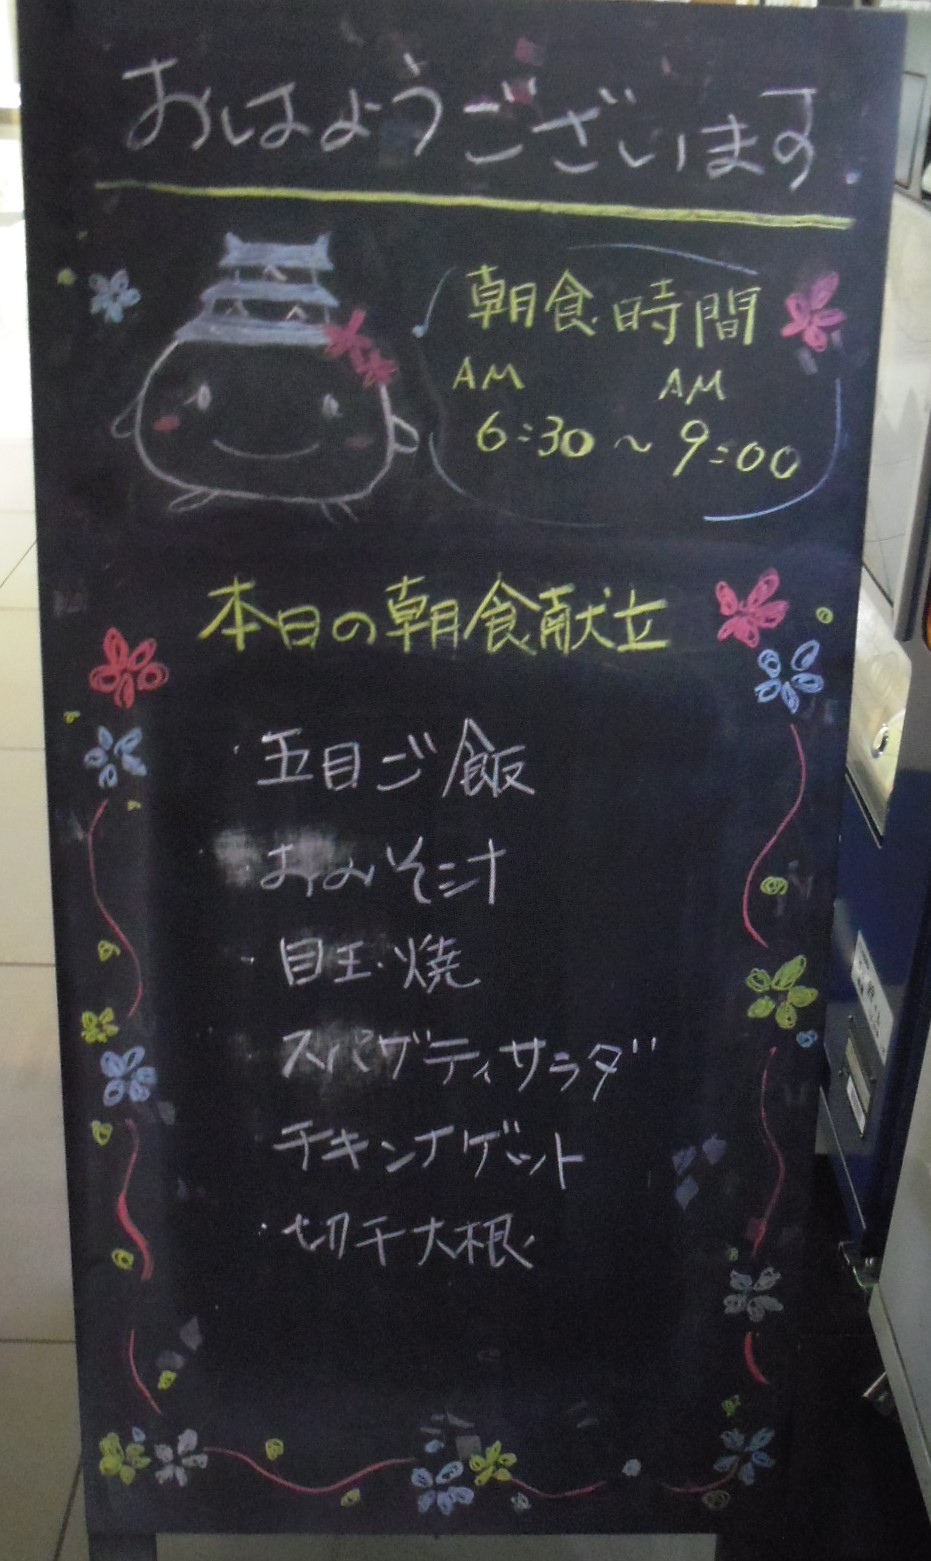 おはようございます
朝食時間
AM AM
6:30 ~ 9:00
本日の朝食献立
・五目ご飯
・おみそ汁
・目玉焼
スパゲティサラダ
チキンナゲット
・切干大根